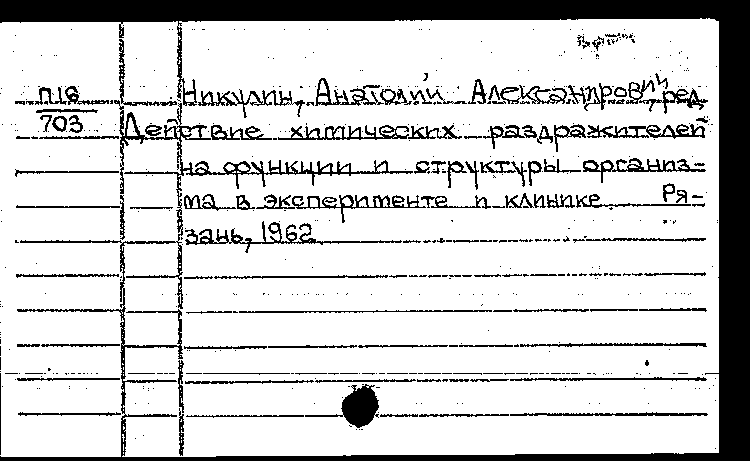 П18
703
Никулин, Анатолий Александрович, ред.
Действие химических раздражителей
на функции и структуры организ-
ма в эксперименте и клинике. Ря-
зань, 1962